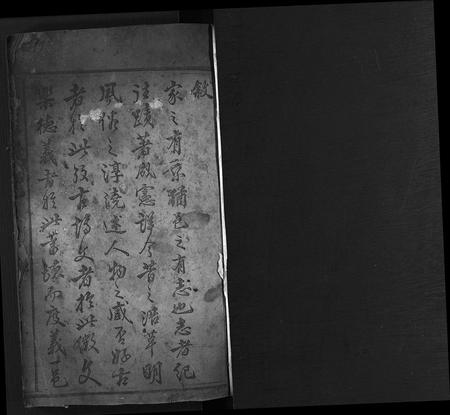 敘
家之有乘猶邑之有志也志者紀
往蹟著成憲詳今昔之沿革明
風俗之淳澆述人物之盛否好古
者於此考古博文者於此徵文
樂德義者於此募德而度義邑